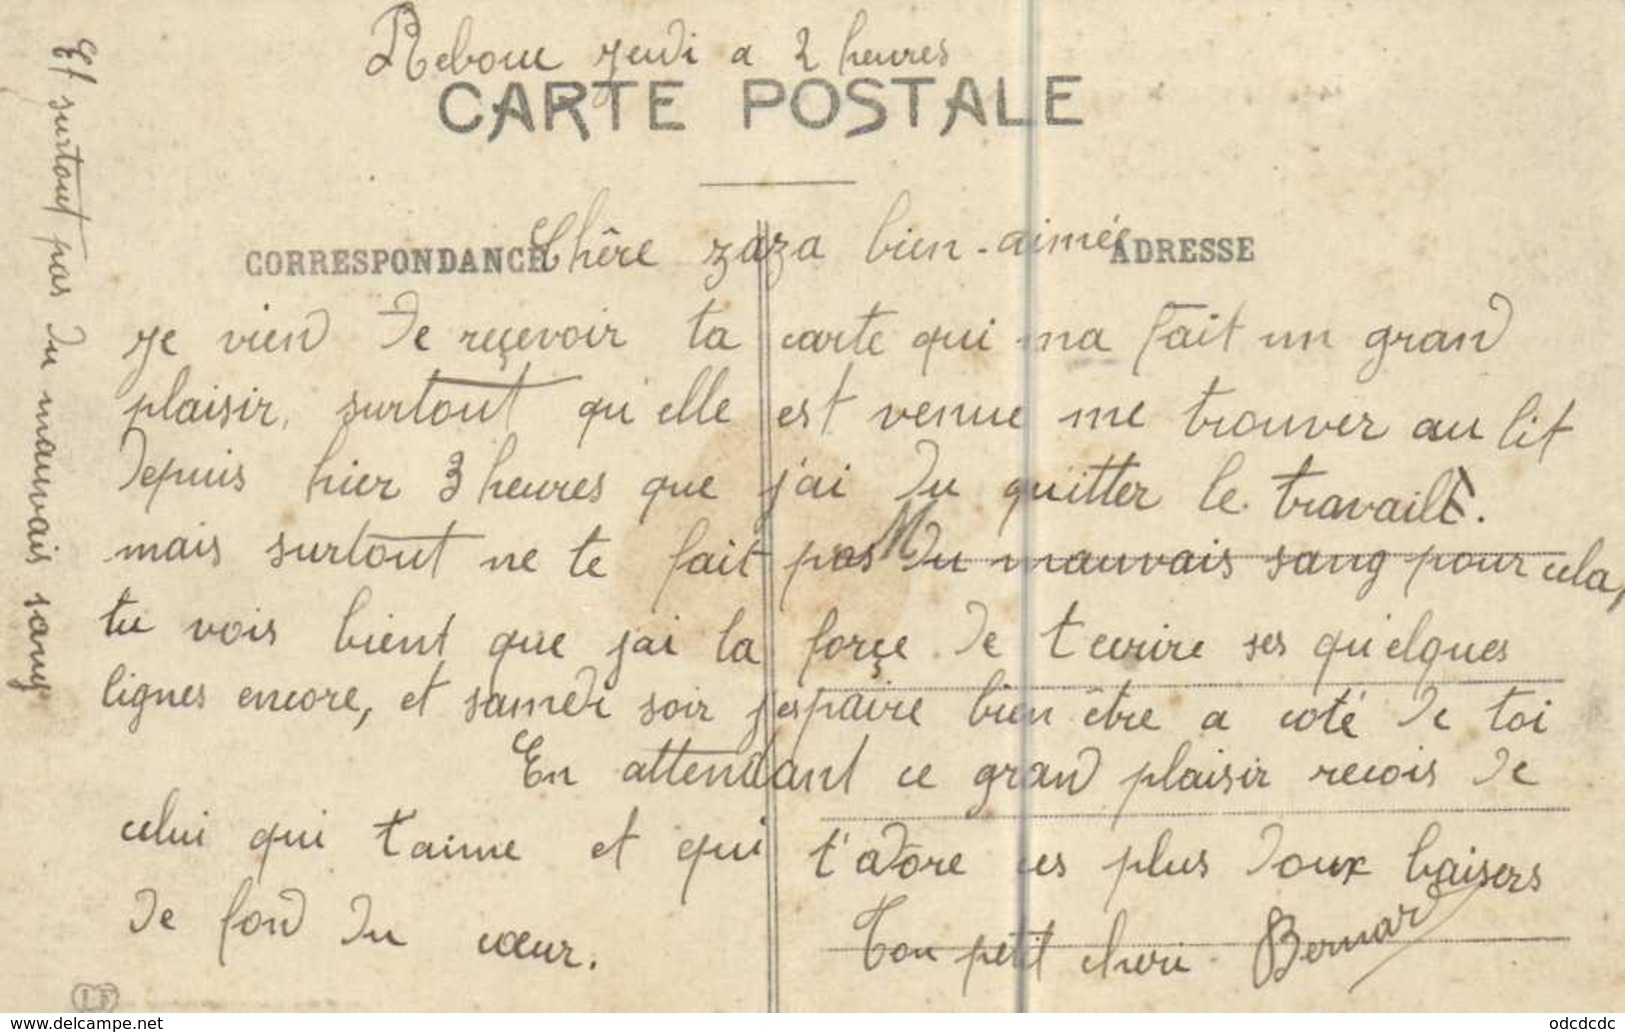 jeudi a 2 heures
CARTE POSTALE
CORRESPONDANCE
ADRESSE
Chêre zaza bien-aimée
je vien de reçevoir ta carte qui ma fait un grand
plaisir, surtout qu'elle est venue me trouver au lit
depuis hier 3 heures que j'ai du quitter le travail.
mais surtout ne te fait pas du mauvais sang pour cela,
tu vois bient que jai la forçe de tecrire ses quelques
lignes encore, et samedi soir jespaire bien être a coté de toi
En attendant ce grand plaisir recois de
celui qui t'aime et qui t'adore ces plus doux baisers
de fond du cœur.
Ton petit cheri Bernard
Et surtout pas du mauvais sang
LF
www.delcampe.net
odcdcdc